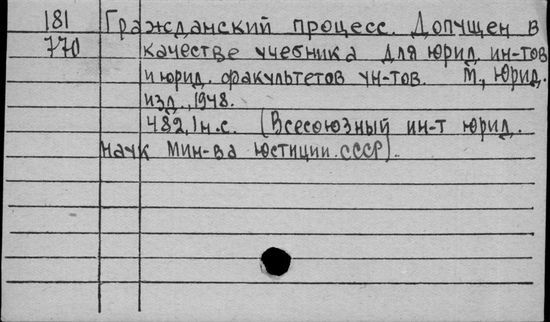 181 Гражданский процесс. Допущен в
770 качестве учебника для юрид. ин-тов
и юрид. факультетов ун-тов. М., Юрид.
изд., 1948.
482,1н.с. (Всесоюзный ин-т юрид.
наук Мин-ва юстиции СССР).